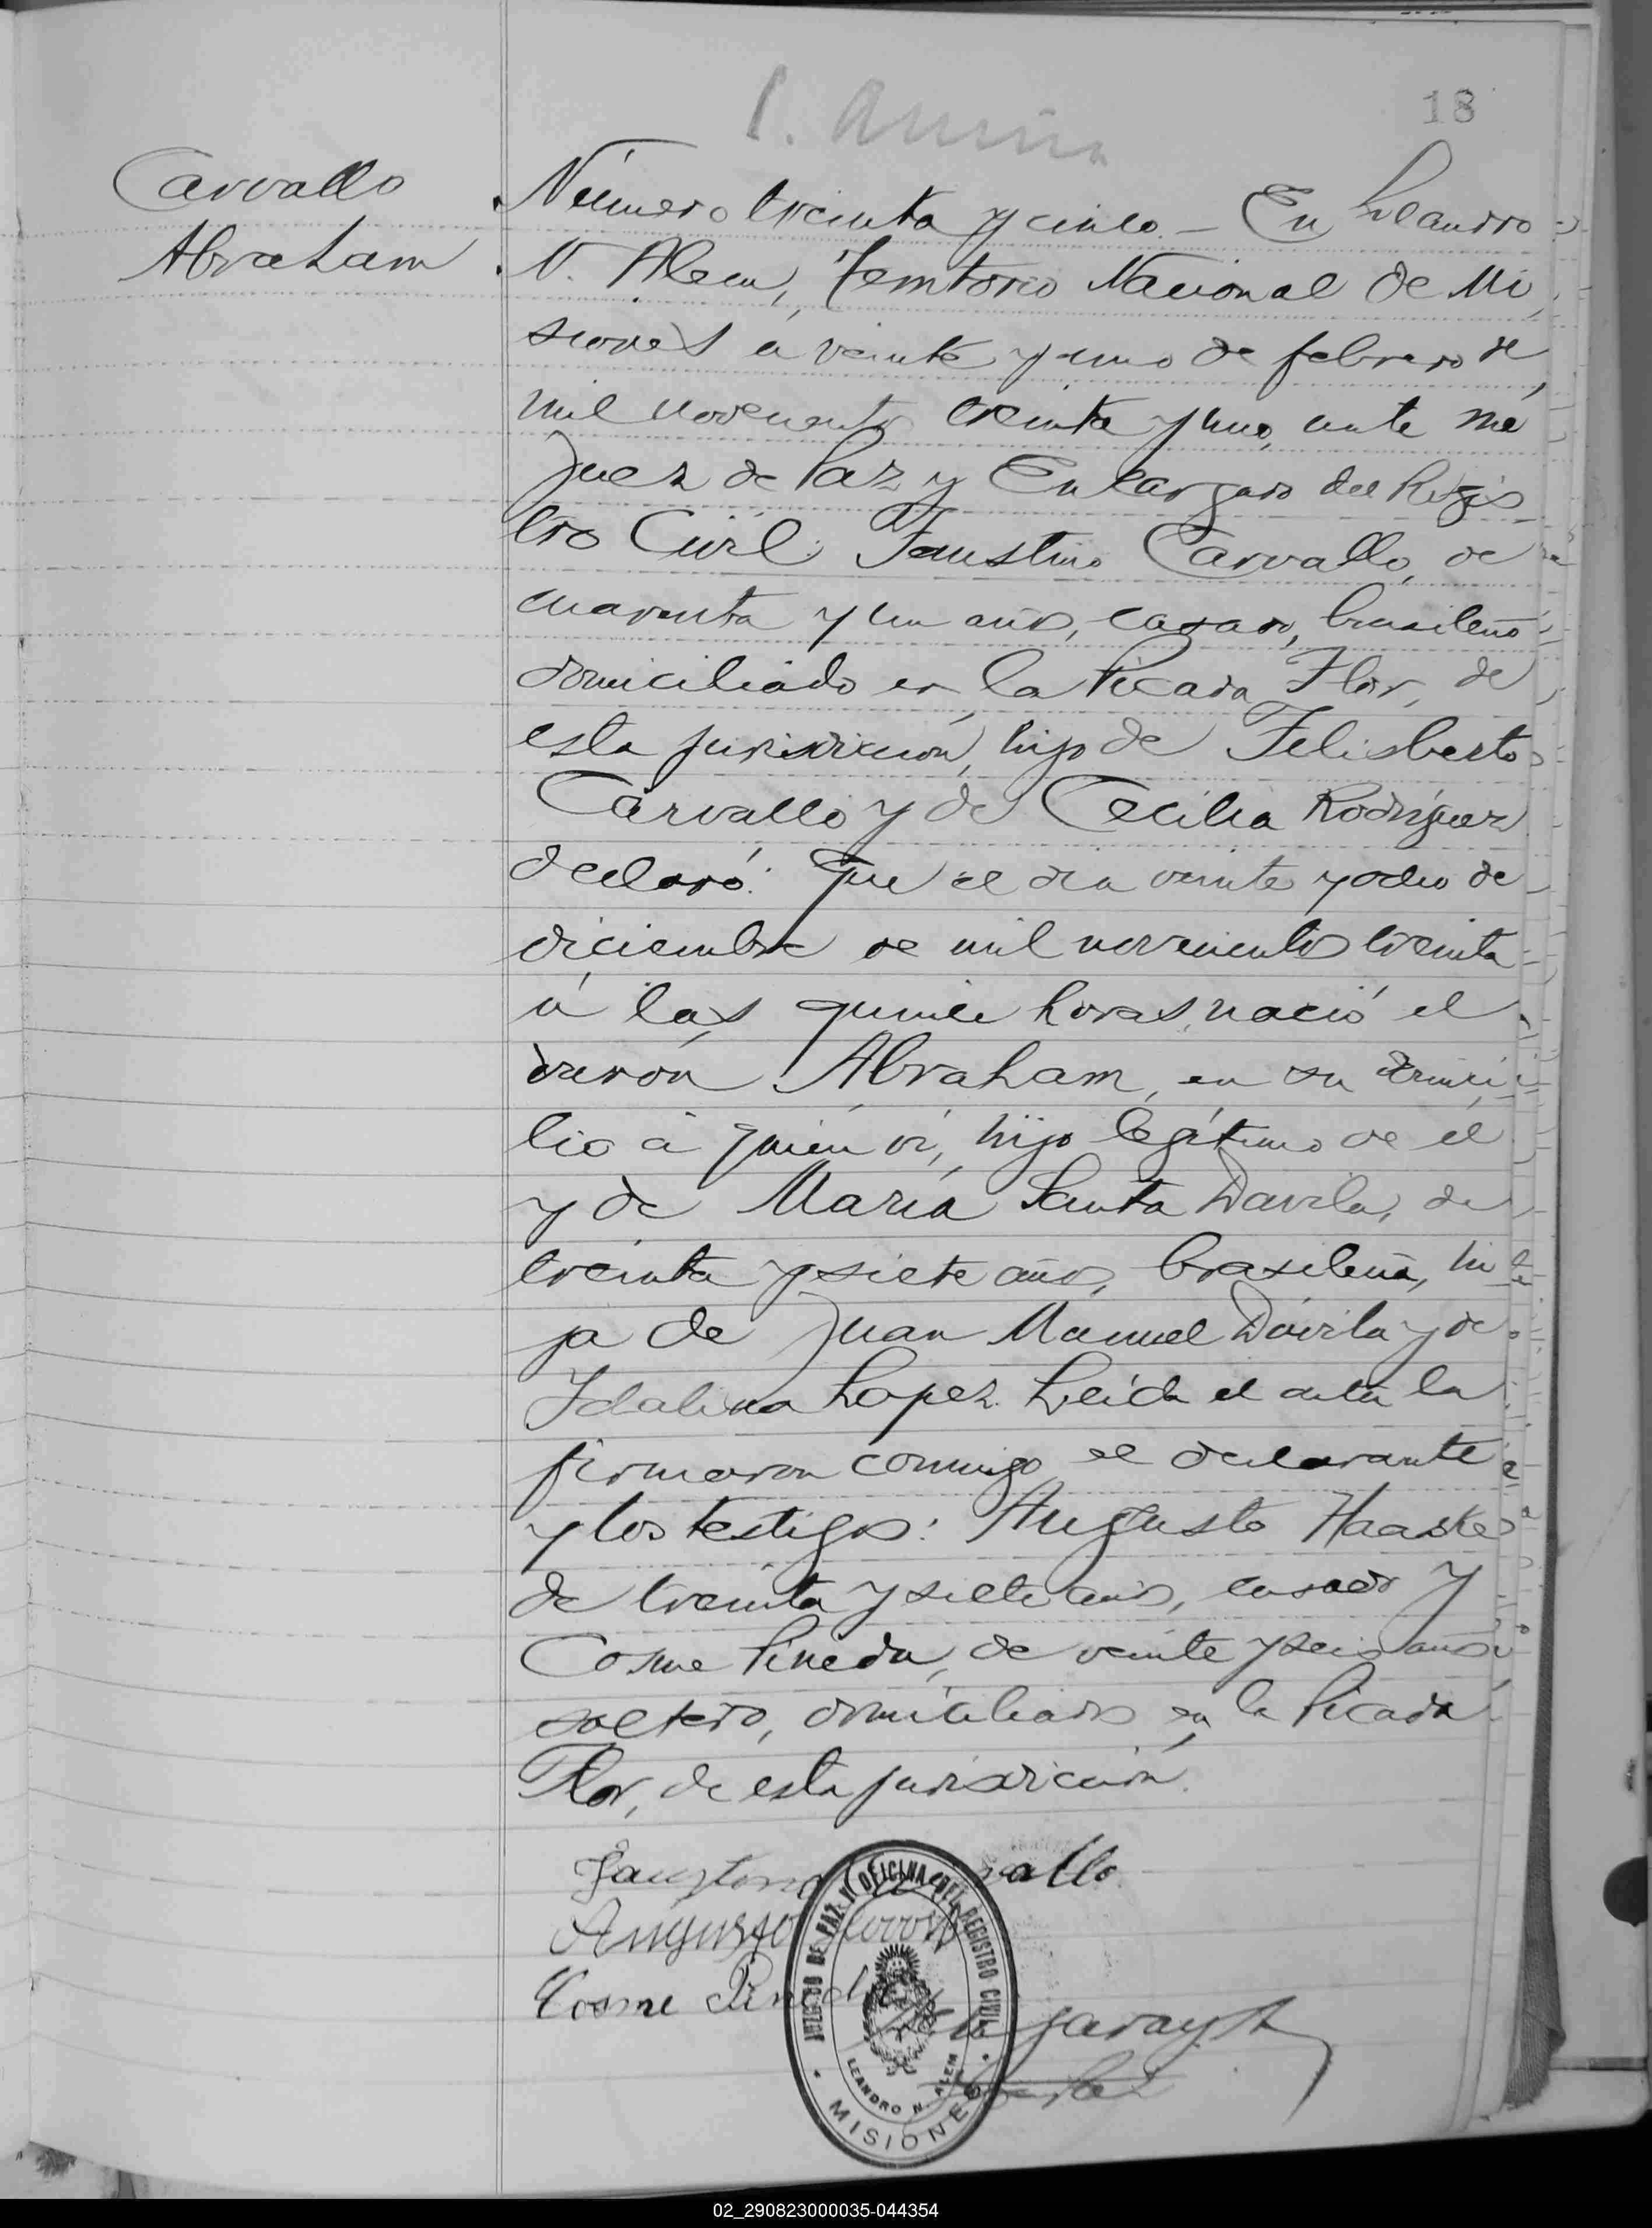 18
Carvallo
Abraham
Número treinta y cinco. — En Leandro
N. Alem, Territorio Nacional de Mi
siones á veinte y uno de febrero de
mil novecientos treinta y uno, ante mi
Juez de Paz y Encargado del Regis
tro Civil: Faustino Carvallo, de
cuarenta y un años, casado, brasileño
domiciliado en la Picada Flor, de
esta jurisdicción, hijo de Felisberto
Carvallo y de Cecilia Rodríguez
declaró: Que el dia veinte y ocho de
diciembre de mil novecientos treinta
á las quince horas, nació el
varón Abraham, en su domici
lio á quien ví, hijo legítimo de él
y de María Santa Davila, de
treinta y siete años, brasileña, hi
ja de Juan Manuel Dávila y de
Idalina Lopez. Leida el acta la
firmaron conmigo el declarante
y los testigos: Augusto Haaske
de treinta y siete años, casado y
Cosme Pineda, de veinte y seis años
soltero, domiciliados en la Picada
Flor, de esta jurisdicción.
Faustino Carvallo
Augusto
Cosme Pineda
JUZGADO DE PAZ Y OFICINA DEL REGISTRO CIVIL
LEANDRO N. ALEM
MISIONES
02_290823000035-044354